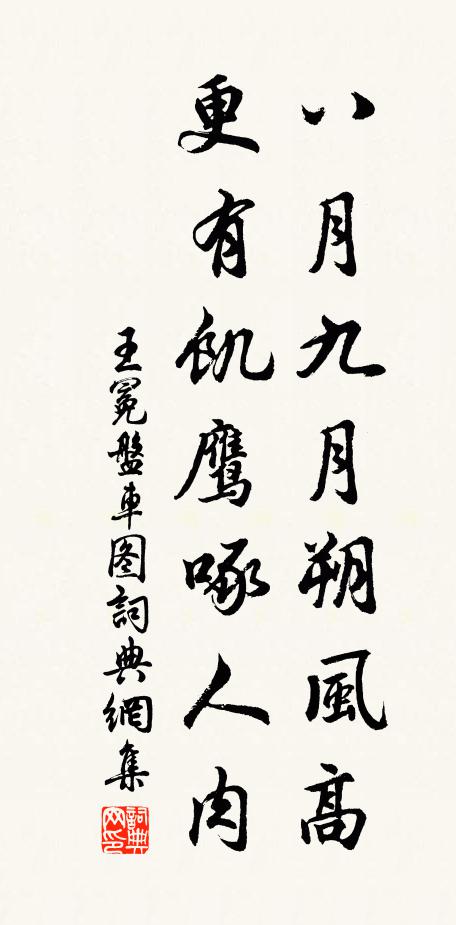 八月九月朔風髙
更有飢鷹啄人肉
王冕盤車图詞典網集
詞典網印